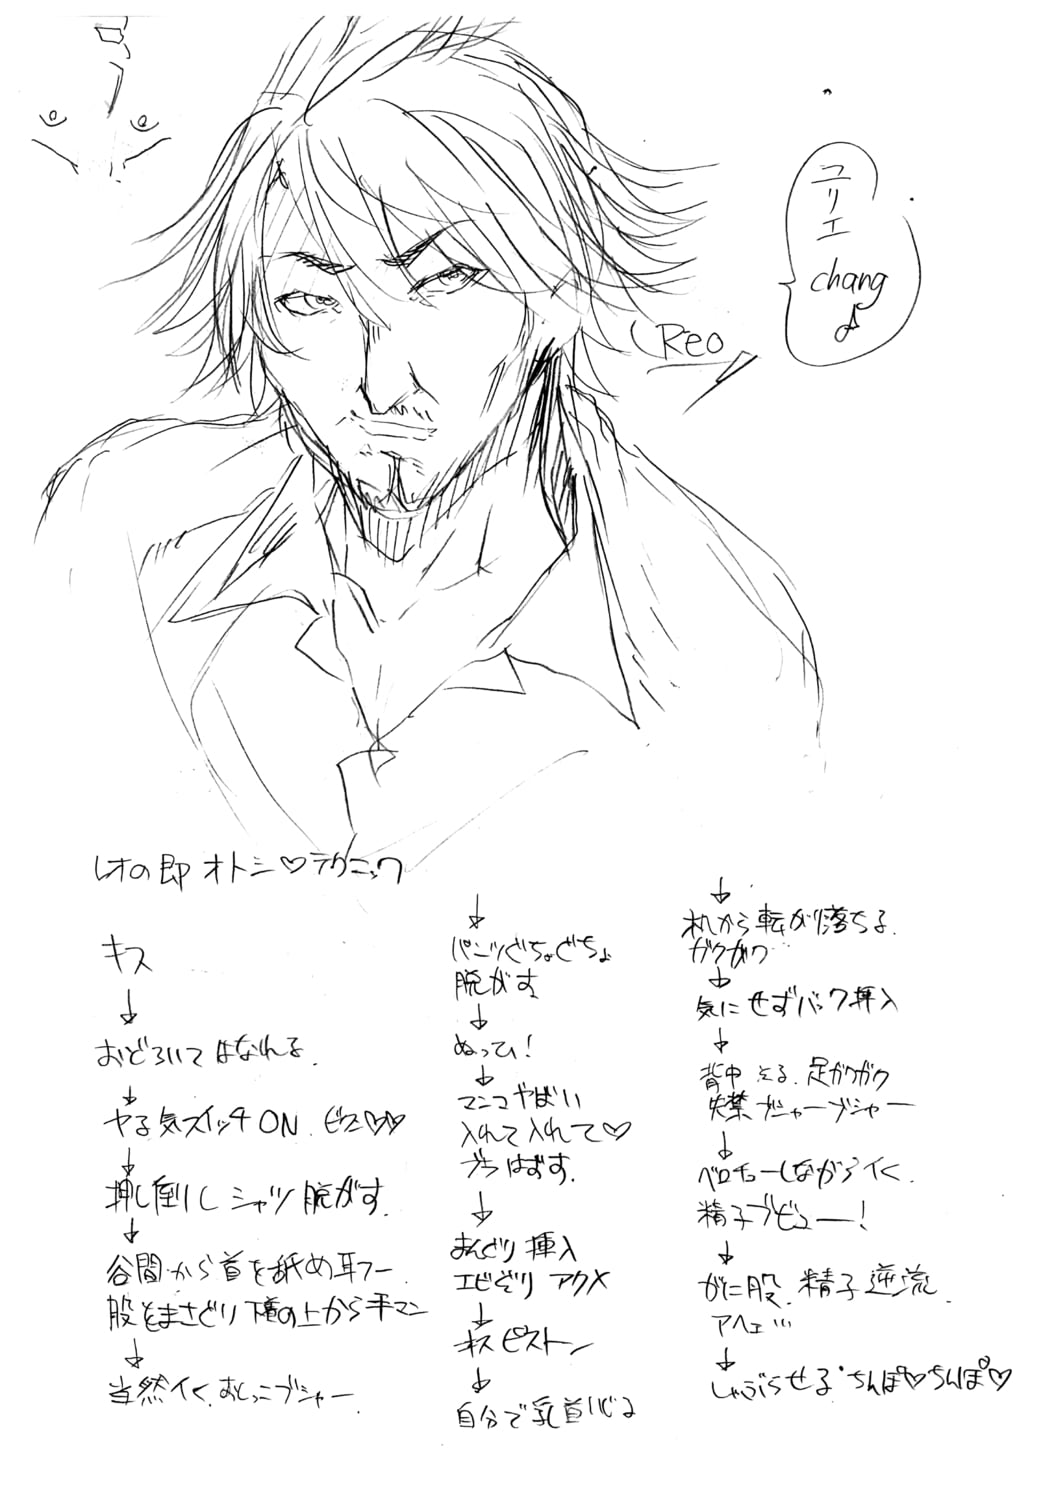 ユリエ
chang
Reo
レオの即オトシ♡テクニック
キス
↓
おどろいてはなれる.
↓
ヤる気スイッチON ビクン♡♡
↓
押し倒し シャツ脱がす.
↓
谷間から首を舐め耳フー
股をまさぐり 下着の上から手マン
↓
当然イく.おしっこブシャー
↓
パンツぐちょぐちょ
脱がす
↓
ぬっひ!
↓
マンコやばい
入れて入れて♡
ブラはずす.
↓
まんぐり挿入
エビぞりアクメ
↓
キスピストン
↓
自分で乳首いじる
↓
机から転がり落ちる.
ガクガク
↓
気にせずバック挿入
↓
背中そる.足ガクガク
失禁ブシャーブシャー
↓
ベロチューしながらイく.
精子ブビュー!
↓
がに股.精子逆流.
アヘェ…
↓
しゃぶらせる・ちんぽ♡ちんぽ♡